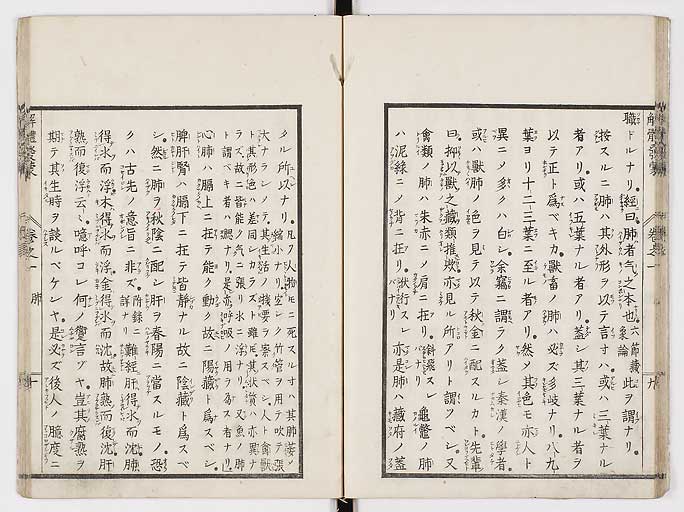 解體發蒙 卷之一 九
職トルナリ。經曰肺者气之本也六節藏象論此ヲ謂ナリ。
按スルニ肺ハ其外形ヲ以テ言オハ或ハ三葉ナル
者アリ或ハ五葉ナル者アリ。蓋シ其三葉ナル者ヲ
以テ正ト爲ベキカ。獸畜ノ肺ハ必ズ多岐ナリ。八九
葉ヨリ十二三葉ニ至ル者アリ。然メ其色モ亦人ト
異ニノ多クハ白シ。余竊ニ謂ラク蓋シ秦漢ノ學者。
或ハ獸肺ノ色ヲ見テ以テ秋金ニ配スルカト。先輩
曰抑以獸之藏類推
亦見ル所アリト謂ツベシ。又
禽類ノ肺ハ朱赤ニノ肩ニ在リ。
飛スレ
龜鼈ノ肺
ハ泥綠ニノ背ニ在リ。
行スレバナリ
亦是肺ハ藏府ノ蓋
タル所以ナリ。
凡ソ人物
ニ死スルオハ其肺
縮小ナリ。
竹管ヲ用テ吹テ張
大ナラシメテ。其生活ノ機要ヲ察スベシ。人ト禽獸
ト其形色ハ差同シカラズト雖
其狀質ハ亦異ナ
ラズ。故ニ皆能ク气ヲ張リ水ニ浮ナリ。又魚ノ肺
ト謂ベキ者ハ
ナリ。是亦呼吸ノ用ヲ爲ス者ナリ
心肺ハ膈上ニ在テ能ク動ク故ニ陽藏ト爲スベシ。
脾肝腎ハ膈下ニ在テ皆靜ナル故ニ陰藏ト爲スベ
シ。然ニ肺ヲ秋陰ニ配シ肝ヲ春陽ニ當スルモノ恐
クハ古先ノ意旨ニ非ズ詳ナリ附錄ニ
難經肝得水而沈肺
得水而浮。木得水而浮金得水而沈故肺熟而復沈肝
熟而復浮云々。噫呼コレ何ノ
言ゾヤ。豈其腐熟ヲ
期テ其生時ヲ談ルベケンヤ。是必ズ後人ノ臆度ニ
解體發蒙 卷之一 肺 十